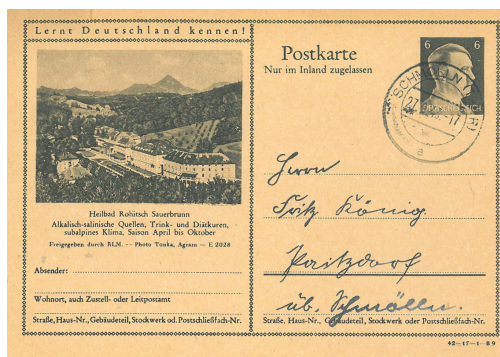 Lernt Deutschland kennen!
Heilbad Rohitsch Sauerbrunn
Alkalisch-salinische Quellen, Trink- und Diätkuren,
subalpines Klima, Saison April bis Oktober
Freigegeben durch RLM. -- Photo Tonka, Agram — E 2028
Absender:
Wohnort, auch Zustell- oder Leitpostamt
Straße, Haus-Nr., Gebäudeteil, Stockwerk od. Postschließfach-Nr.
Postkarte
Nur im Inland zugelassen
6 6
DEUTSCHES REICH
27
17
a
Herrn
Fritz König.
Paitzdorf
üb. Schmölln.
Straße, Haus-Nr., Gebäudeteil, Stockwerk oder Postschließfach-Nr.
42—17—1—B9